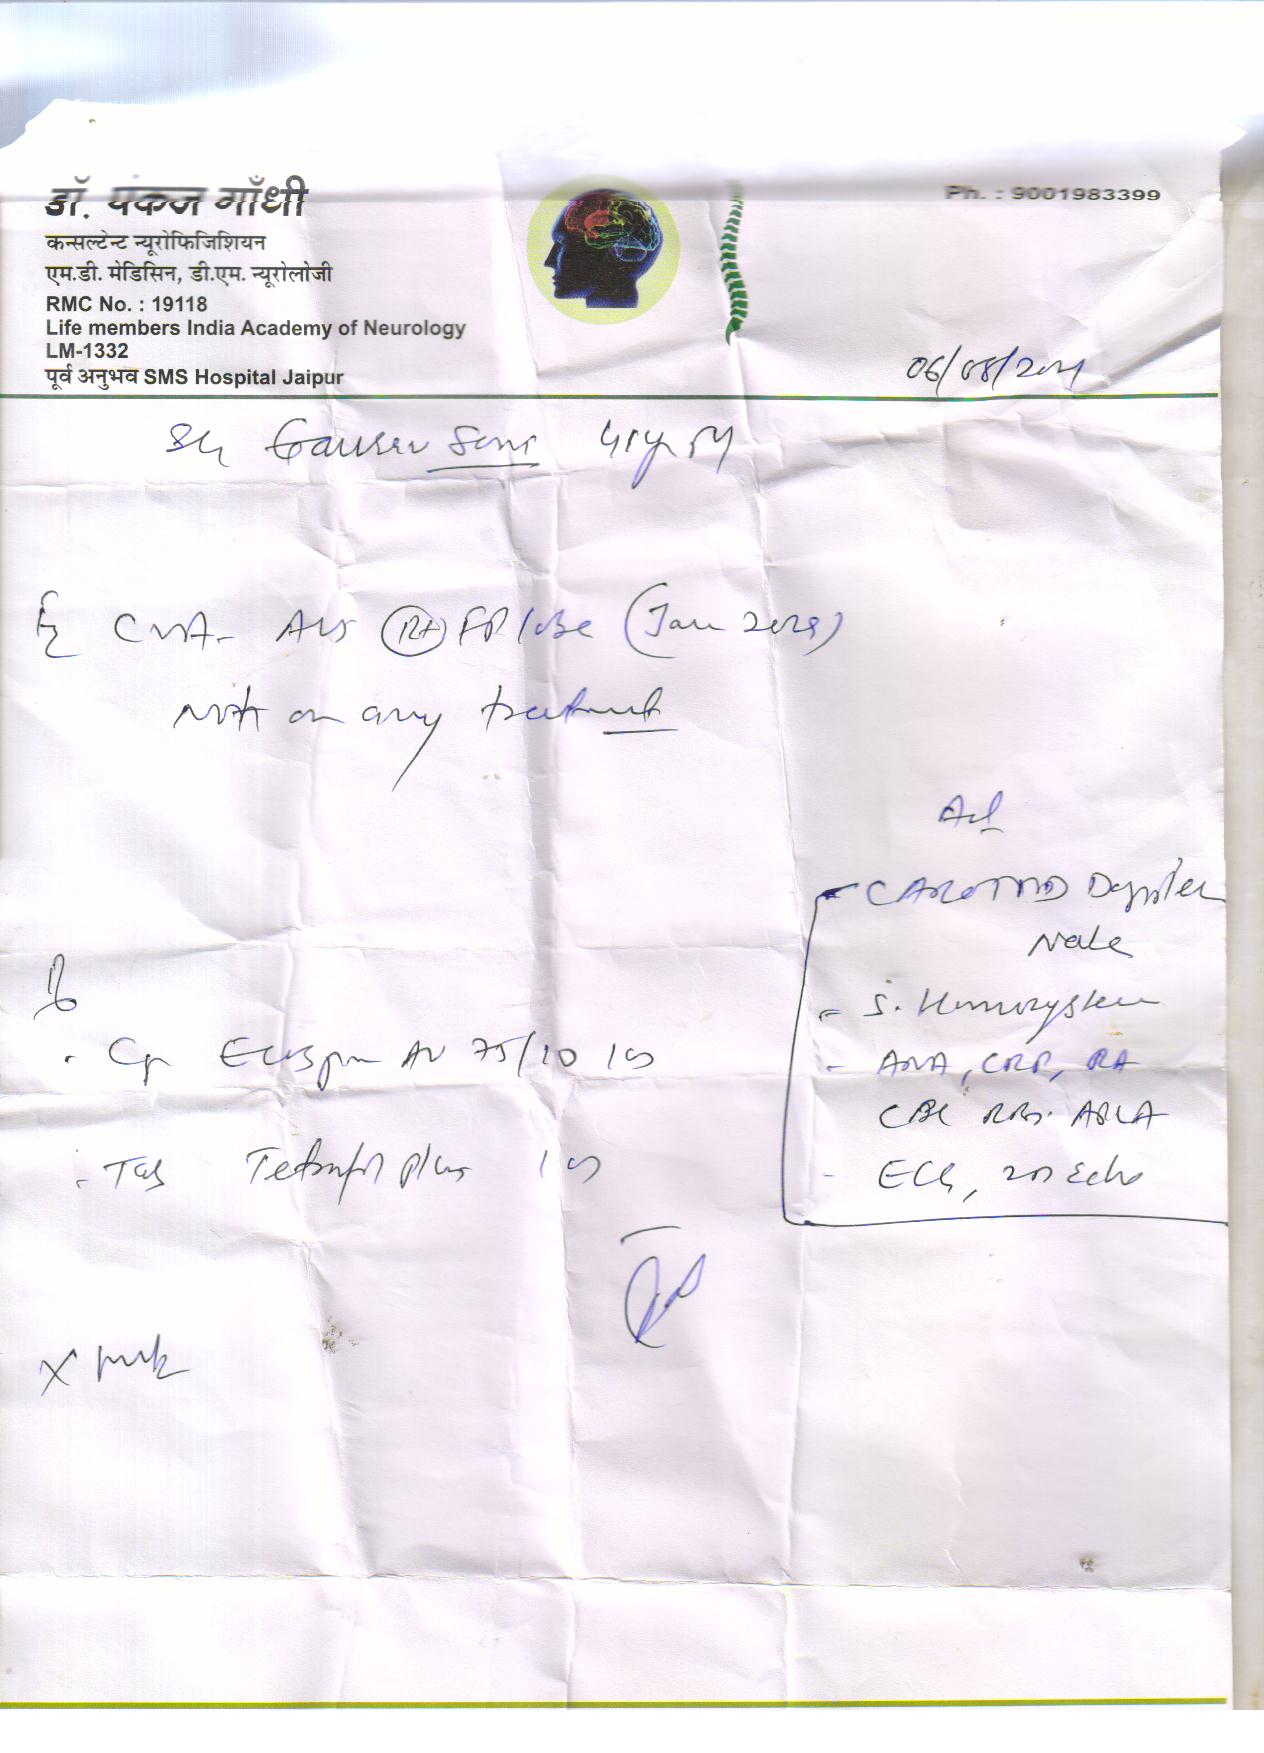 डॉ. पंकज गाँधी
कन्सल्टेन्ट न्यूरोफिजिशियन
एम.डी. मेडिसिन, डी.एम. न्यूरोलोजी
RMC No. : 19118
Life members India Academy of Neurology
LM-1332
पूर्व अनुभव SMS Hospital Jaipur
Ph. : 9001983399
06/08/
Gaurav Soni
CVA- (Rt) FP lobe (Jan
Not on any treatment
Adv
CAROTID Doppler
Neck
- S. Homocysteine
- ANA, CRP, RA
CBC RBS.
- ECG, 2D Echo
Rx
. Cap Ecosprin AV 75/10
. Tab plus